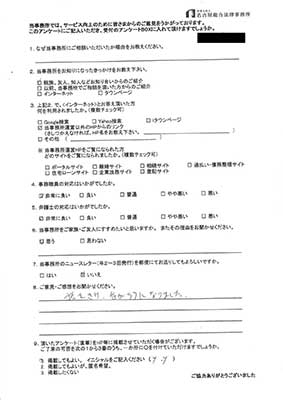 名古屋総合法律事務所
当事務所では、サービス向上のために皆さまからのご意見をうかがっております。
このアンケートにご記入いただき、受付のアンケートBOXに入れて頂けますか。
1. なぜ当事務所にご相談いただいたか理由をお教えください。
2. 当事務所をお知りになったきっかけをお教え下さい。
親族、友人、知人などお知り合いからのご紹介
以前、当事務所でご相談を頂いた方からのご紹介
インターネット タウンページ
3. 上記2. で、《インターネット》とお答え頂いた方
何を利用されましたか。(複数チェック可)
Google検索 Yahoo検索 iタウンページ
当事務所運営以外のHPからのリンク
(さしつかえなければ、HP名をお教え下さい。 )
その他 ( )
※ 当事務所運営HPをご覧になられた方
どのサイトをご覧になられましたか。(複数チェック可)
ポータルサイト 離婚サイト 相続サイト 過払い・債務整理サイト
住宅ローンサイト 企業法務サイト 登記サイト
4. 事務職員の対応はいかがでしたか。
非常に良い 良い 普通 やや悪い 悪い
5. 弁護士の対応はいかがでしたか。
非常に良い 良い 普通 やや悪い 悪い
6. 当事務所をご家族・ご友人にすすめたいと思いますか。 またその理由をお聞かせください。
思う 思わない
7. 当事務所のニュースレター(年2~3回発行)を郵便にてお送りしてもよろしいですか。
はい いいえ
8. ご意見・ご感想をお聞かせください。
9. 頂いたアンケート(直筆)をHP等に掲載させていただく場合がございます。
ご了承の可否を次の1から3番のうち、一か所に○を付けていただけますか。
1 掲載してもよい。 イニシャルをご記入ください( Y . Y )
2 掲載してもよいが、匿名希望。
3 掲載したくない
ご協力ありがとうございました